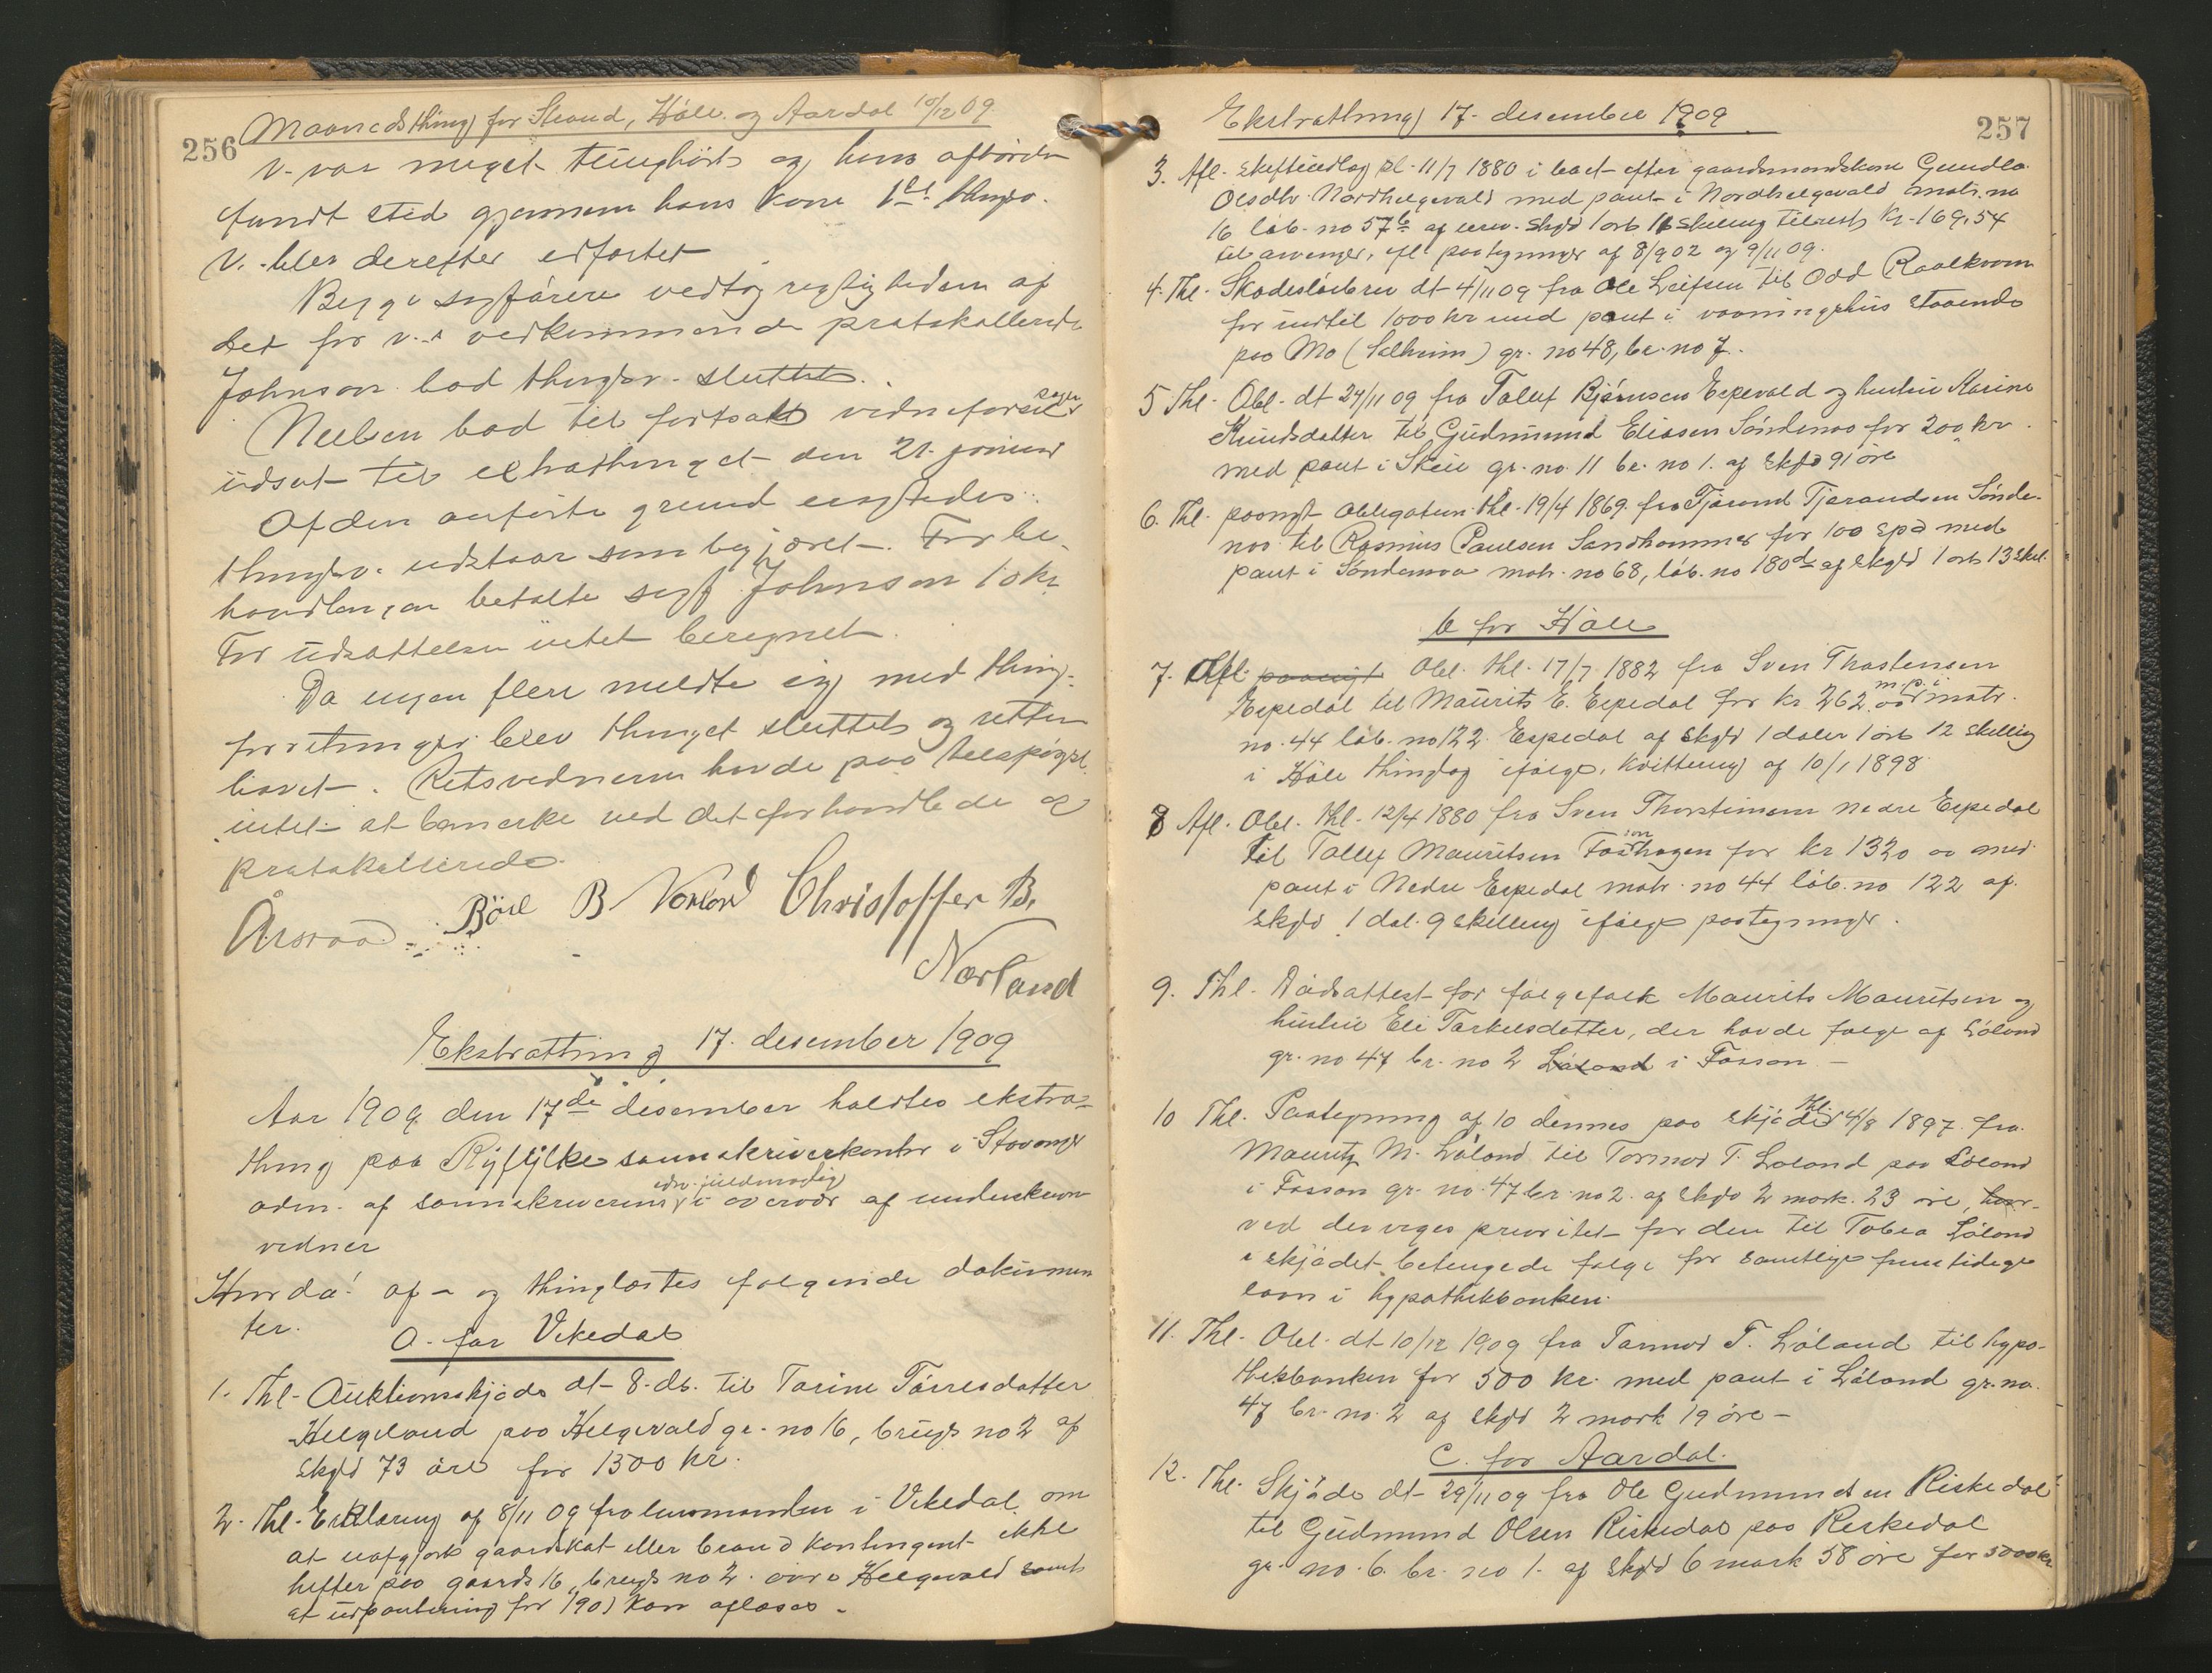 256 Maanedsthing for Strand, Höle og Aardal 10/12 09
V. var meget tunghört og hans afhörelse
fandt sted gjennem hans kone 1ste thingsv.
V. blev derefter edfæstet
Begge sagförere vedtog rigtigheden af
det for v.s vedkommende protokollerede
Johnson bad thingsv. sluttet.
Nielsen bad til fortsat vidneförsel sagen
udsat til extrathinget den 21. januar
Af den anförte grund eragtedes:
thingsv. udstaar som begjæret. For be-
handlingen betalte sagf. Johnson 10 kr.
For udsættelsen intet beregnet.
Da ingen flere meldte sig med thing-
forretninger blev thinget sluttet og retten
hævet. Retsvidnerne havde paa tilspörgsel
intet at bemerke ved det forhandlede og
protokollerede.
Årsvoll Böie B Norland Christoffer B.
Norland
Ekstrathing 17. desember 1909
Aar 1909 den 17de desember holdtes ekstra-
thing paa Ryfylke sorenskriverkontor i Stavanger
adm. af sorenskriveren edv. fuldmægtig i overvær af underskrevne
vidner
Hvorda: af- og thinglæstes fölgende dokumen
ter.
A. for Vikedal
1. Thl. Auktionsskjöde dt 8. ds. til Torine Törresdatter
Helgeland paa Helgevold gr. no 16, brugs no 2 af
skyld 73 öre for 1300 kr.
2. Thl. Erklæring af 8/11 09 fra lensmanden i Vikedal om
at uafgjort gaardskat eller brandkontingent ikke
hefter paa gaards 16, brugs no 2. övre Helgevold samt
at udpantning for 1901 kan aflæses.
Ekstrathing 17. desember 1909 257
3. Afl. skifteudlæg thl. 11/7 1880 i boet efter gaardmandskone Gundla
Olsdtr Nordhelgevold med pant i Nordhelgevold matr. no
16 löb. no 57b af urev. skyld 1 ort 16 skilling tilrest kr. 169,54
til arvinger, ifl paategninger af 8/9 02 og 9/11 09.
4. Thl. Skadeslösbrev dt 4/11 09 fra Ole Leifsen til Odd Raalkvam
for indtil 1000 kr med pant i vaaningshus staaende
paa Mo (Solheim) gr. no 48, br. no 7.
5 Thl. Obl. dt 24/11 09 fra Tollef Björnsen Espevold og hustru Karine
Knudsdatter til Gudmund Eliasen Söndenaa for 200 kr.
med pant i Skeie gr. no. 11 br. no 1. af skyld 91 öre
6. Thl. paangt obligation thl. 19/4 1869 fra Tjörand Tjerandsen Sönde-
naa til Rasmus Paulsen Sandhammer for 100 spd med
pant i Söndenaa matr. no 68, löb. no 180d af skyld 1 ort 13 skil.
b for Höle
7. Afl. paangt Obl. thl. 17/7 1882 fra Sven Thostensen
Espedal til Maurits E. Espedal for kr. 262.00 m.p.i matr.
no. 44 löb. no 122 Espedal af skyld 1 daler 1 ort 12 skilling
i Höle thinglag ifölge kvittering af 10/1 1898
8 Afl. Obl. thl. 12/4 1880 fra Sven Thorstensen nedre Espedal
til Tollef Mauritsen Fossanhagen for kr 1320 00 med
pant i Nedre Espedal matr. no 44 löb. no 122 af
skyld 1 dal. 9 skilling ifölge paategninger.
9. Thl. Dödsattest for folgefolk Maurits Mauritsen og
hustru Eli Torkelsdatter, der havde folge af Löland
gr. no 47 br. no 2 Löland i Fossan
10 Thl. Paategning af 10 dennes paa skjöde thl. 4/8 1897 fra
Mauritz M. Löland til Tormod T. Löland paa Löland
i Fossan gr. no. 47 br. no 2. af skyld 2 mark 23 öre, hvor-
ved der viges prioritet for den til Tobea Löland
i skjödet betingede folge for samtlige fremtidige
laan i hypothekbanken.
11. Thl. Obl. dt 10/12 1909 fra Tormod T. Löland til hypo-
thekbanken for 500 kr. med pant i Löland gr. no.
47 br. no 2 af skyld 2 mark 19 öre
C. for Aardal.
12. Thl. Skjöde dt 29/11 09 fra Ole Gudmundsen Riskedal
til Gudmund Olsen Riskedal paa Riskedal
gr. no. 6 br. no 1. af skyld 6 mark 58 öre for 5000 kr.